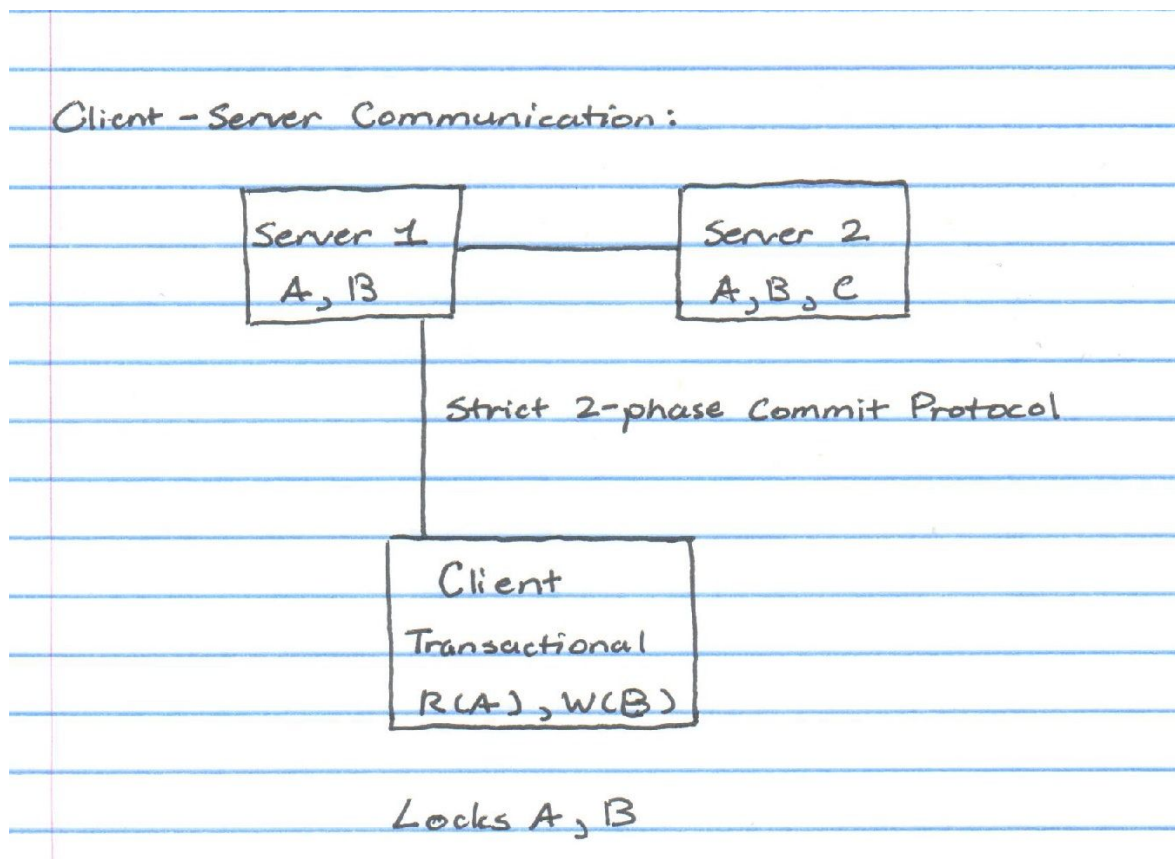 Client - Server Communication:
Server 1
A, B
Server 2
A, B, C
Strict 2-phase Commit Protocol
Client
Transactional
R(A), W(B)
Locks A, B